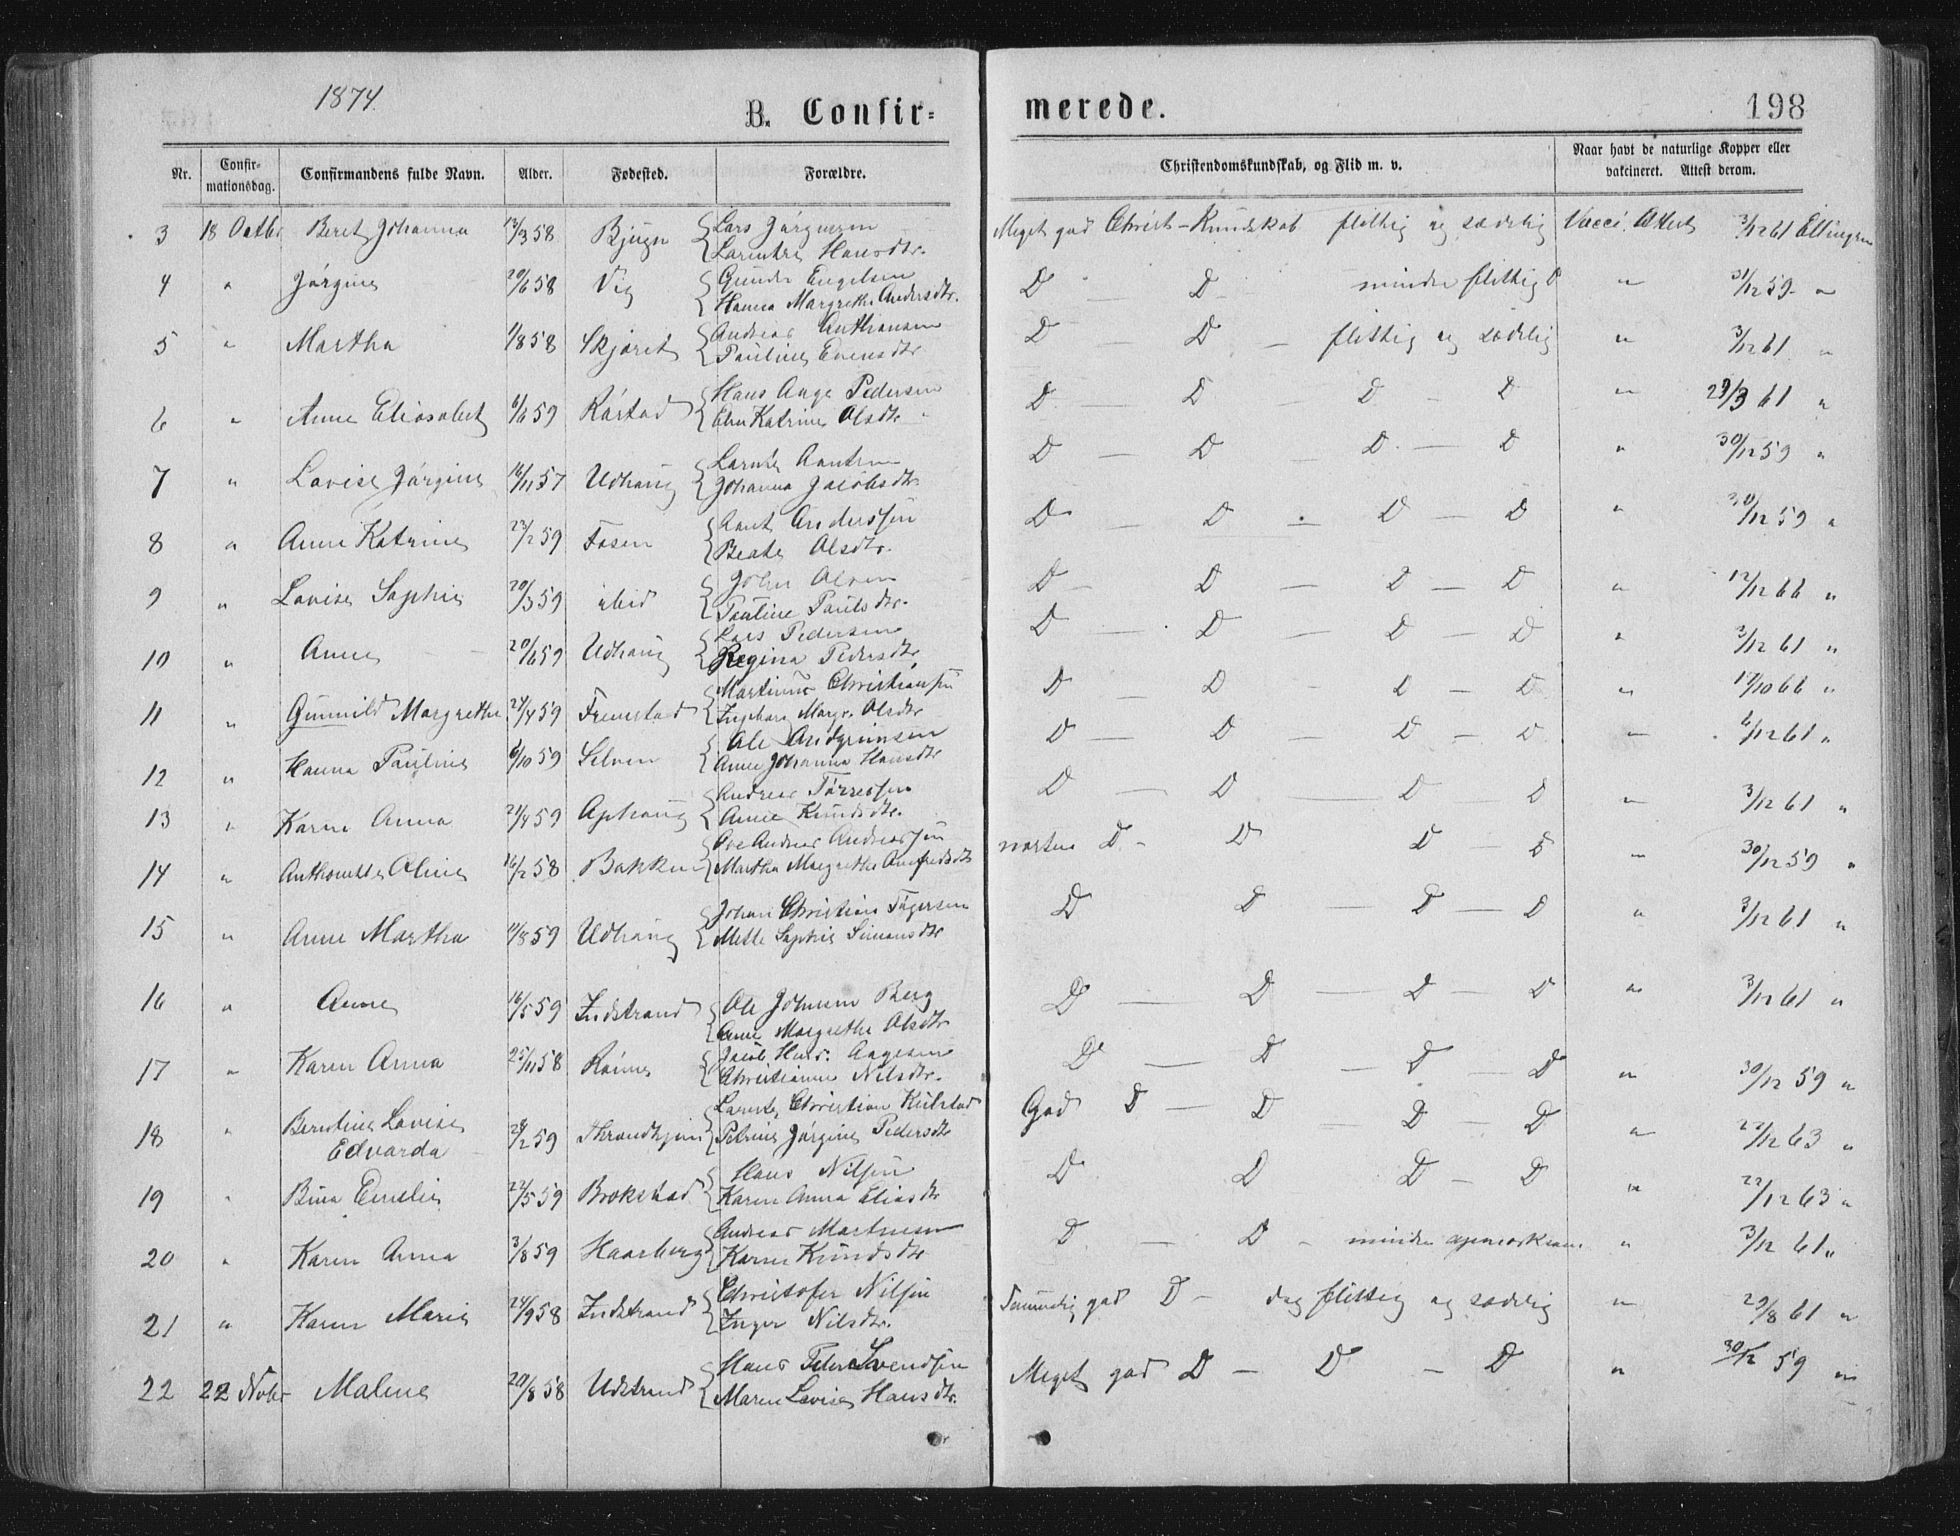 1874.
B. Confir=
merede.
198
Nr.
Confir-
mationsdag.
Confirmandens fulde Navn.
Alder.
Fødested.
Forældre.
Christendomskundskab, og Flid m. v.
Naar havt de naturlige Kopper eller
vakcineret. Attest derom.
3 18 Octbr Beret Johanna 13/3 58 Bjugn Lars Jørgensen
Hansdtr. Meget god Christ-Kundskab flittig og sædelig Vacci. Attest 3/12 61
4 " Jørgine 20/6 58 Vig Gunder Engelsen
Hanna Margrethe Andersdtr. D — D mindre flittig D " 31/12 59 "
5 " Martha 1/8 58 Skjøret Andreas
Pauline Evensdtr D — D — flittig og sædelig " 3/12 61 "
6 " Anne Eliasabet 6/6 59 Rørstad Hans Aage Pedersen
Elen Katrine Olsdtr D — D — D — D " 29/3 61 "
7 " Lovise Jørgine 16/11 57 Udhaug
Johanna Jacobsdtr D — D D — D " 30/12 59 "
8 " Anne Katrine 23/2 59 Fosen Arnt Anderssen
Beate Olsdtr. D — D — D — D " 30/12 59 "
9 " Lovise Sophie 20/3 59 ibid John Olsen
Pauline Paulsdtr. D — D — D — D " 12/12 66 "
10 " Anne 20/6 59 Udhaug Lars Pedersen
Regina Pedersdtr D — D — D — D " 3/12 61 "
11 " Gunnild Margrethe 24/4 59 Fremstad Martinus Christiansen
Ingebor Margr. Olsdtr D — D D — D " 17/10 66 "
12 " Hanna Pauline 6/10 59 Selven Ole
Anne Johanna Hansdtr D — D — D — D " 6/12 61 "
13 " Karen Anna 21/4 59 Ophaug Andreas Tørressen
Anne Knudsdtr. D — D — D — D " 3/12 61 "
14 " Oline 16/2 58 Bakken Ove Andreas Andreassen
Martha Margrethe næsten D — D D — D " 30/12 59 "
15 " Anne Martha 11/8 59 Udhaug Johan Christian
Mette Sophie Simonsdtr D D — D — D " 3/12 61 "
16 " Anne 16/5 59 Indstrand Ole Johnsen Berg
Anne Margrethe Olsdtr D — D — D — D " 3/12 61 "
17 " Karen Anna 25/11 58 Rønne Jacob Aagesen
Christianna Nilsdtr. D — D — D — D " 30/12 59 "
18 " Berntine Lovise
Edvarda 24/2 59 Throndhjem Christian
Petrine Jørgine Pedersdtr God D — D D — D " 22/12 63 "
19 " Bina Emelie 22/5 59 Brøkstad Hans Nilsen
Karen Anna Eliasdtr D D D — D " 22/12 63 "
20 " Karen Anna 3/8 59 Haarberg Andreas Martinsen
Karen Knudsdtr D — D — mindre opmærksom " 3/12 61 "
21 " Karen Marie 24/9 58 Indstrand Christofer Nilsen
Inger Nilsdtr. Temmelig god D — dog flittig og sædelig " 29/8 61 "
22 22 Novbr Maline 20/8 58 Udstrand Hans Peter Svendsen
Maren Lovise Hansdtr. Meget god D — D — D " 30/12 59 "